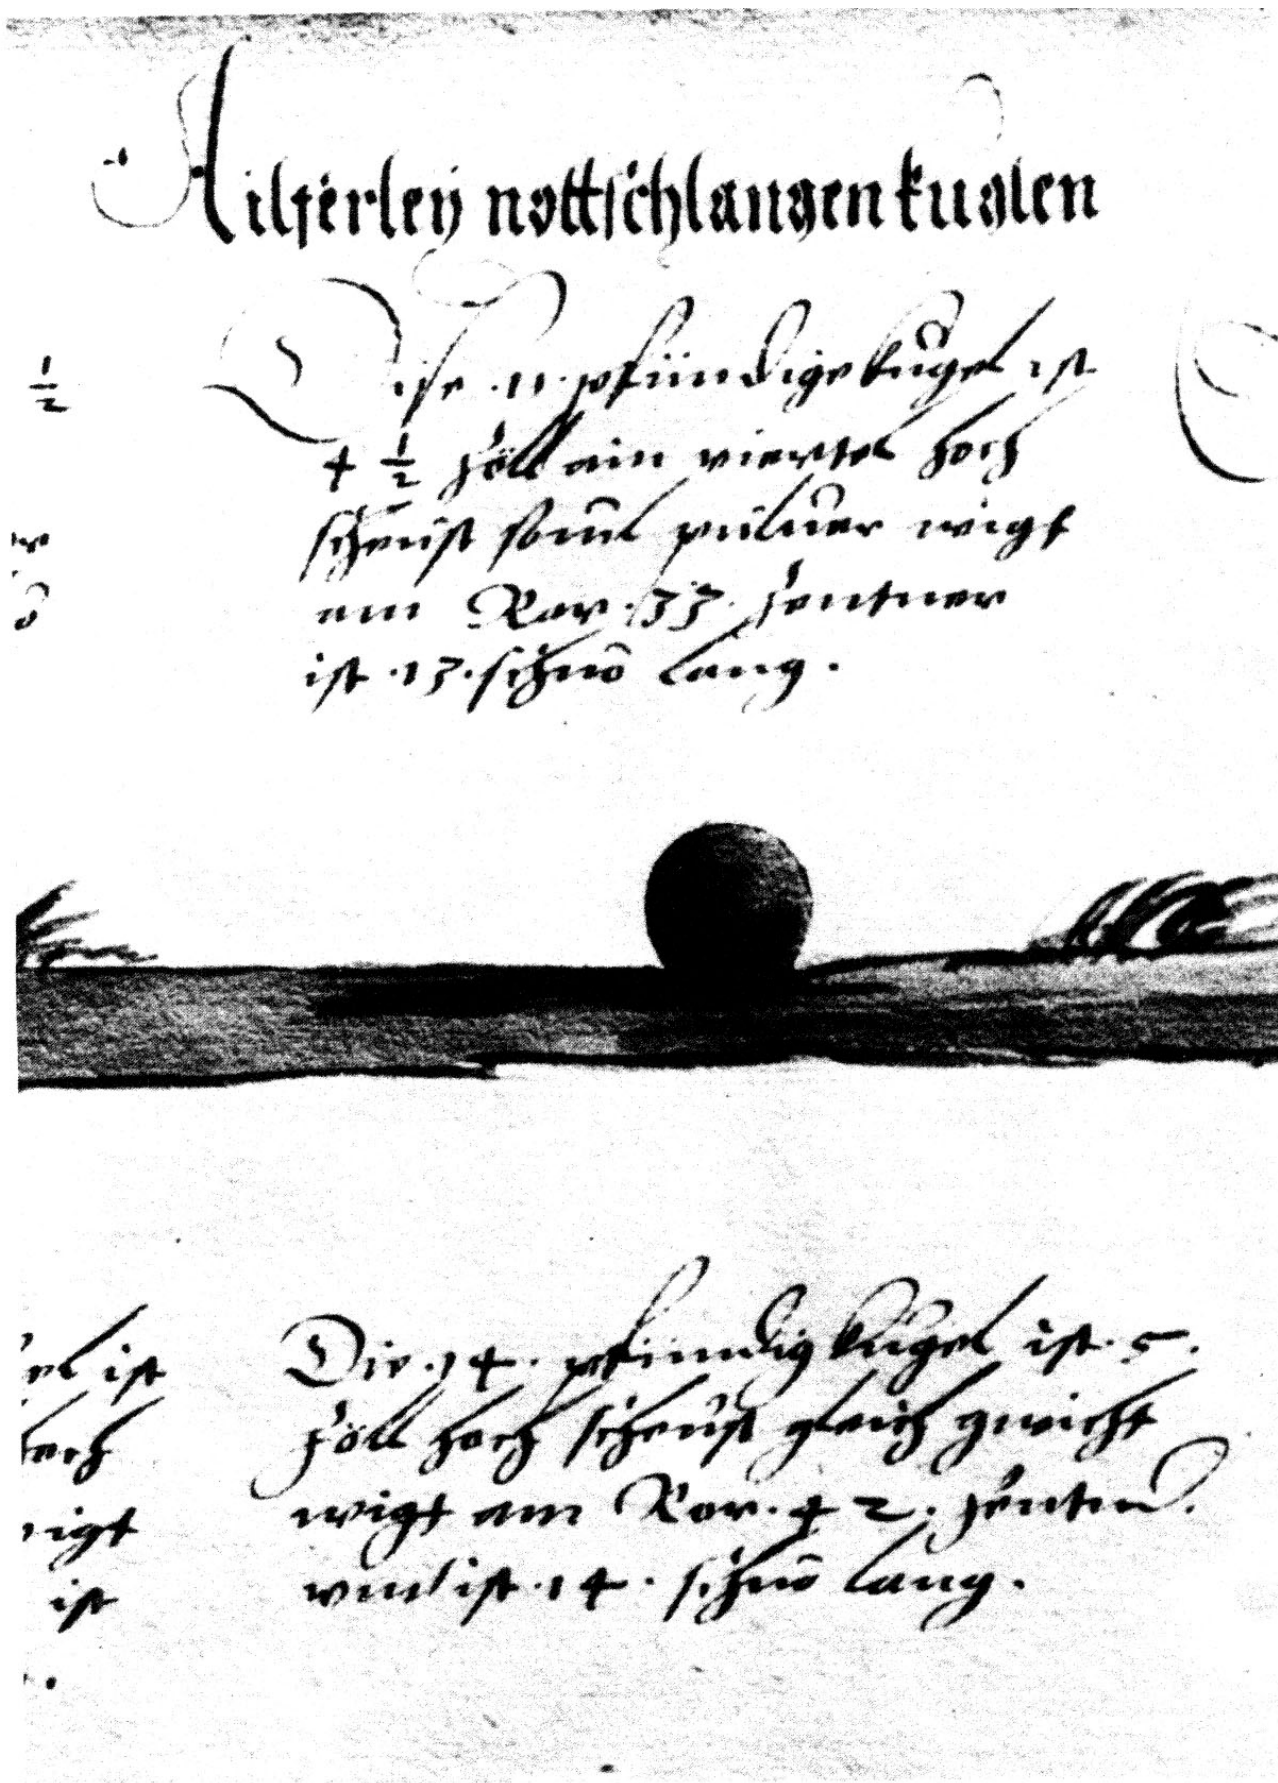 Ailferley nottschlangen kuglen
Dise .11. pfündige kugel ist
4 1/2 zöll ain viertel hoch
scheüst souil puluer wigt
am Ror .33. zentner
ist .13. schuo lang.
Die .14. pfündig kugel ist .5.
zöll hoch scheüst gleich gwicht
wigt am Ror .42. zentner.
vnd ist .14. schuo lang.
1/2
el ist
hoch
wigt
ist